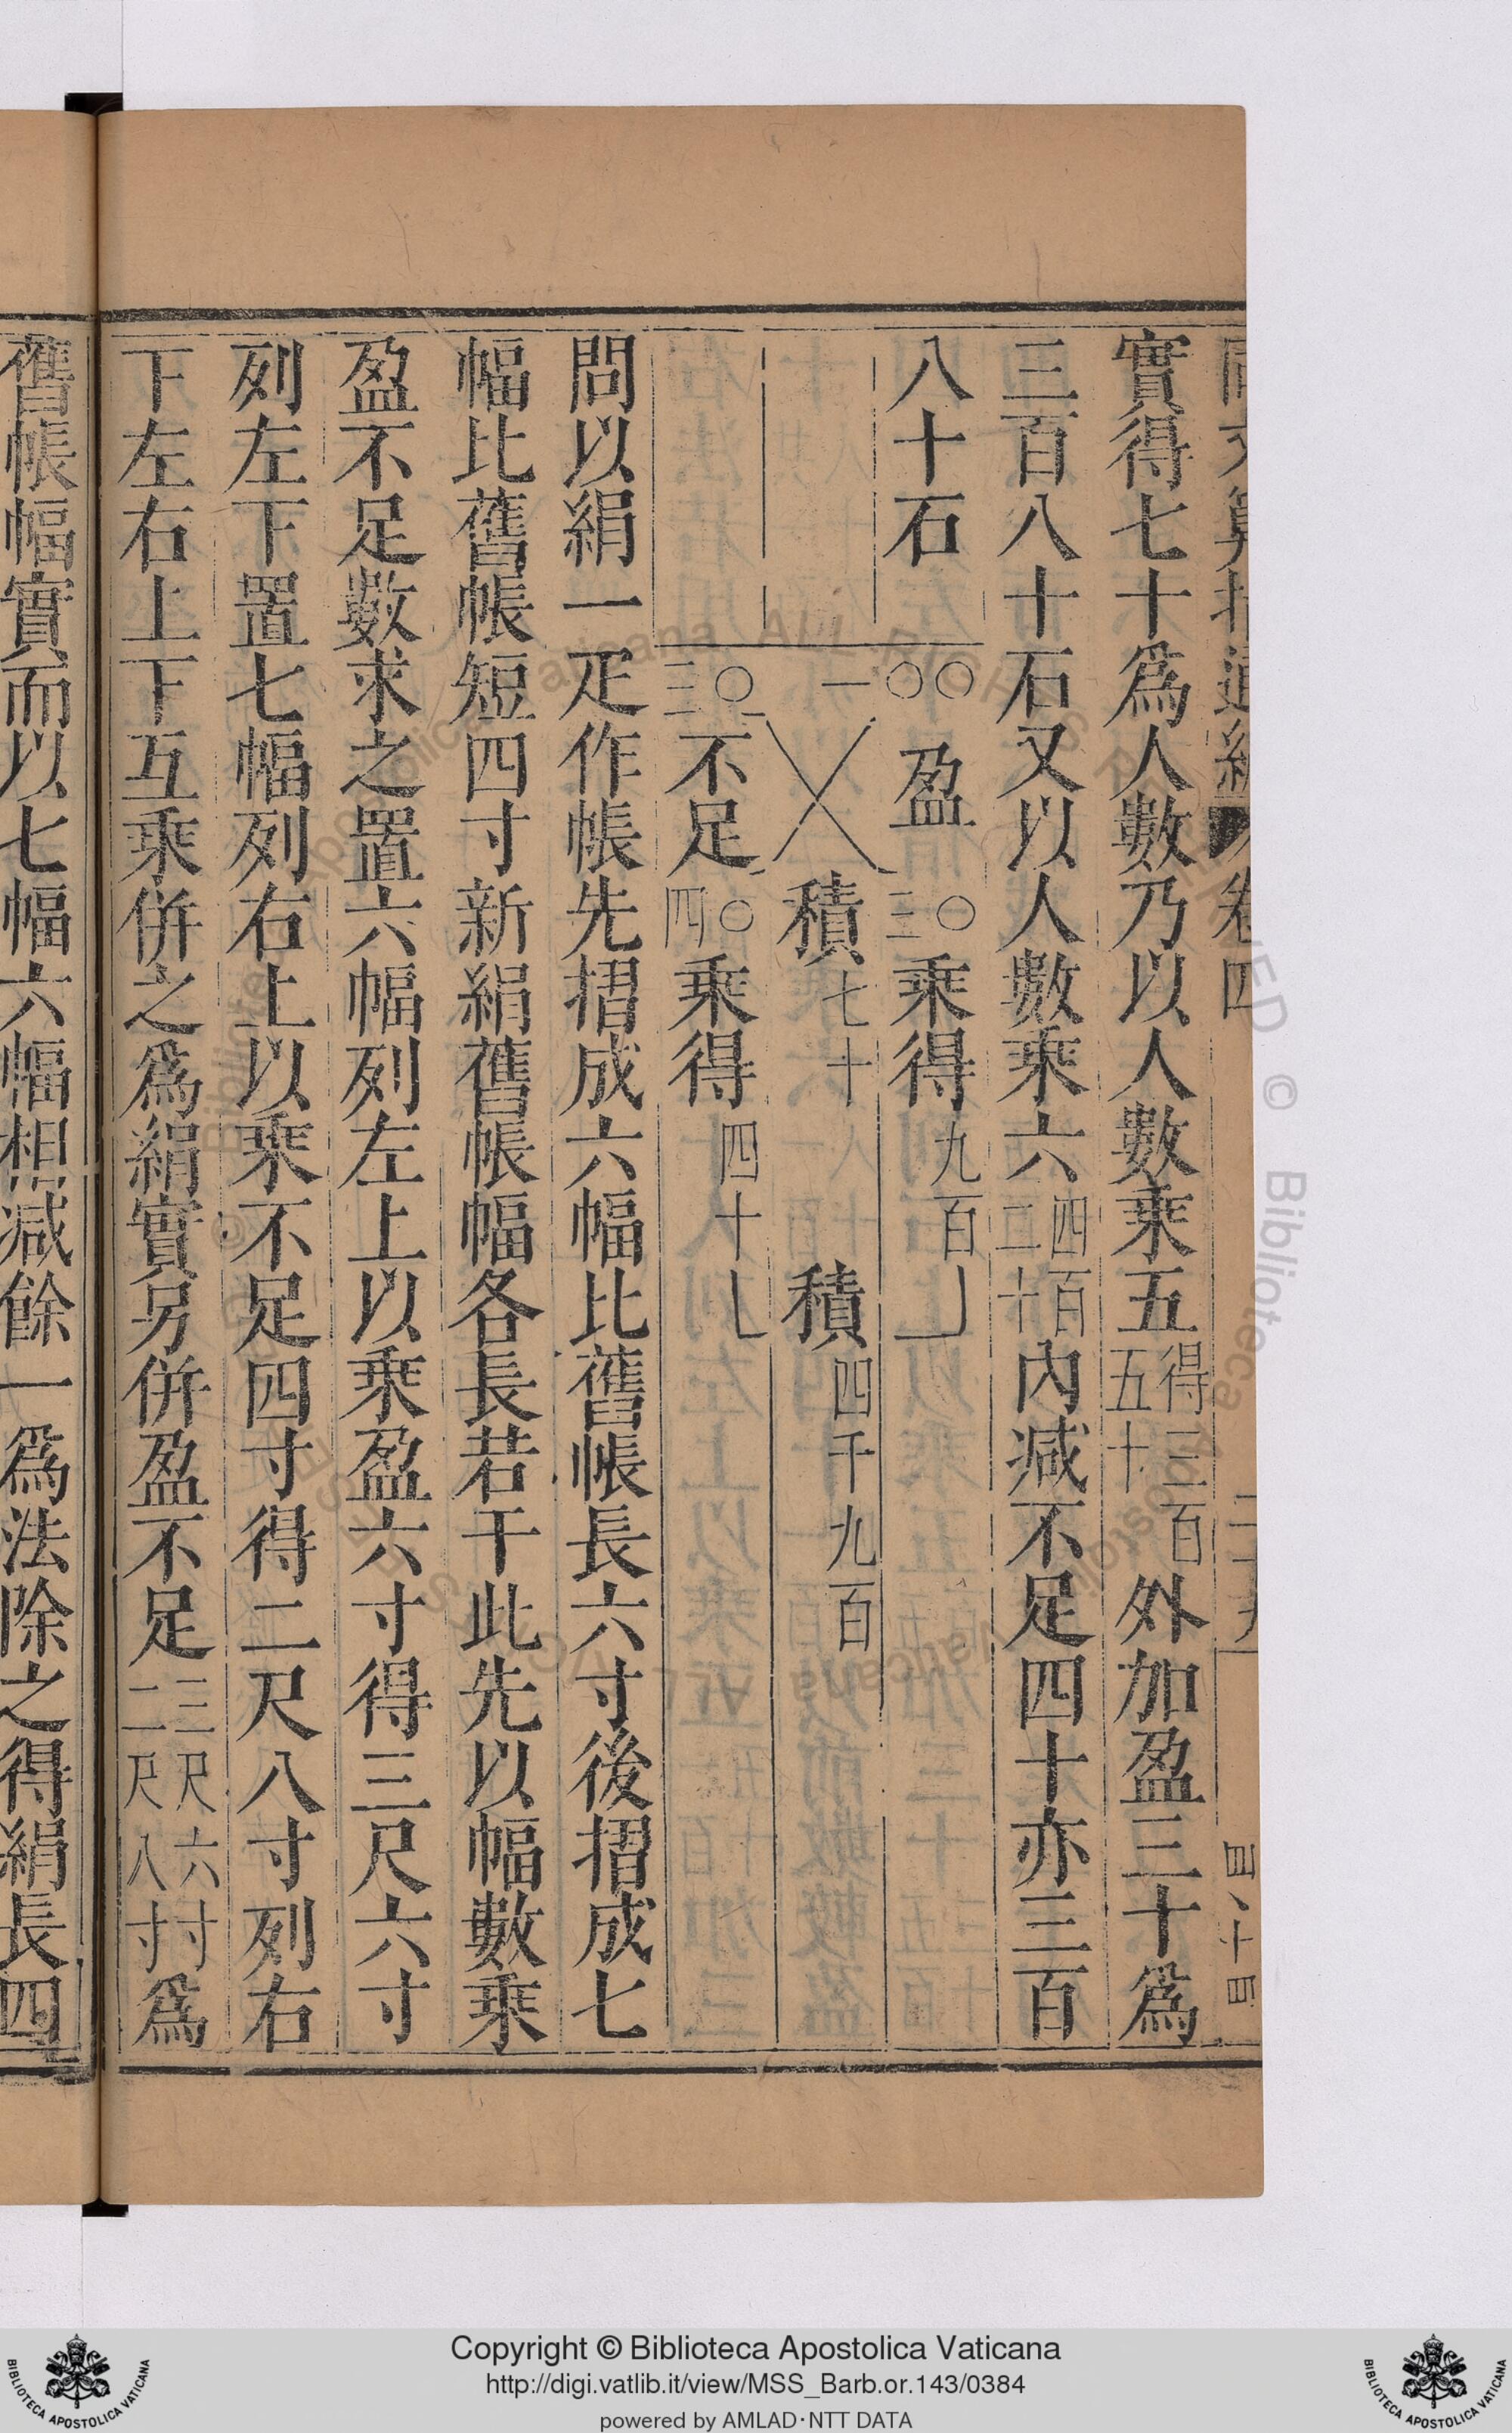 實得七十爲人數乃以人數乘五得三百五十外加盈三十爲
三百八十石又以人數乘六四百二十內減不足四十亦三百
八十石
〇〇盈三〇乘得九百
一積七十積四千九百
三〇不足四〇乘得四十
問以絹一疋作帳先摺成六幅比舊帳長六寸後摺成七
幅比舊帳短四寸新絹舊帳幅各長若干此先以幅數乘
盈不足數求之置六幅列左上以乘盈六寸得三尺六寸
列左下置七幅列右上以乘不足四寸得二尺八寸列右
下左右上下互乘併之爲絹實另併盈不足三尺六寸二尺八寸爲
舊帳幅實而以七幅六幅相減餘一爲法除之得絹長四
Copyright © Biblioteca Apostolica Vaticana
http://digi.vatlib.it/view/MSS_Barb.or.143/0384
powered by AMLAD·NTT DATA
BIBLIOTECA APOSTOLICA VATICANA
BIBLIOTECA APOSTOLICA VATICANA